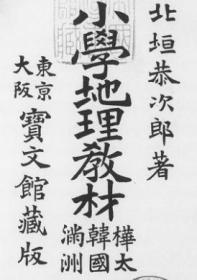 北垣恭次郎著
小學地理教材
樺太
韓國
滿洲
東京
大阪
寶文館藏版